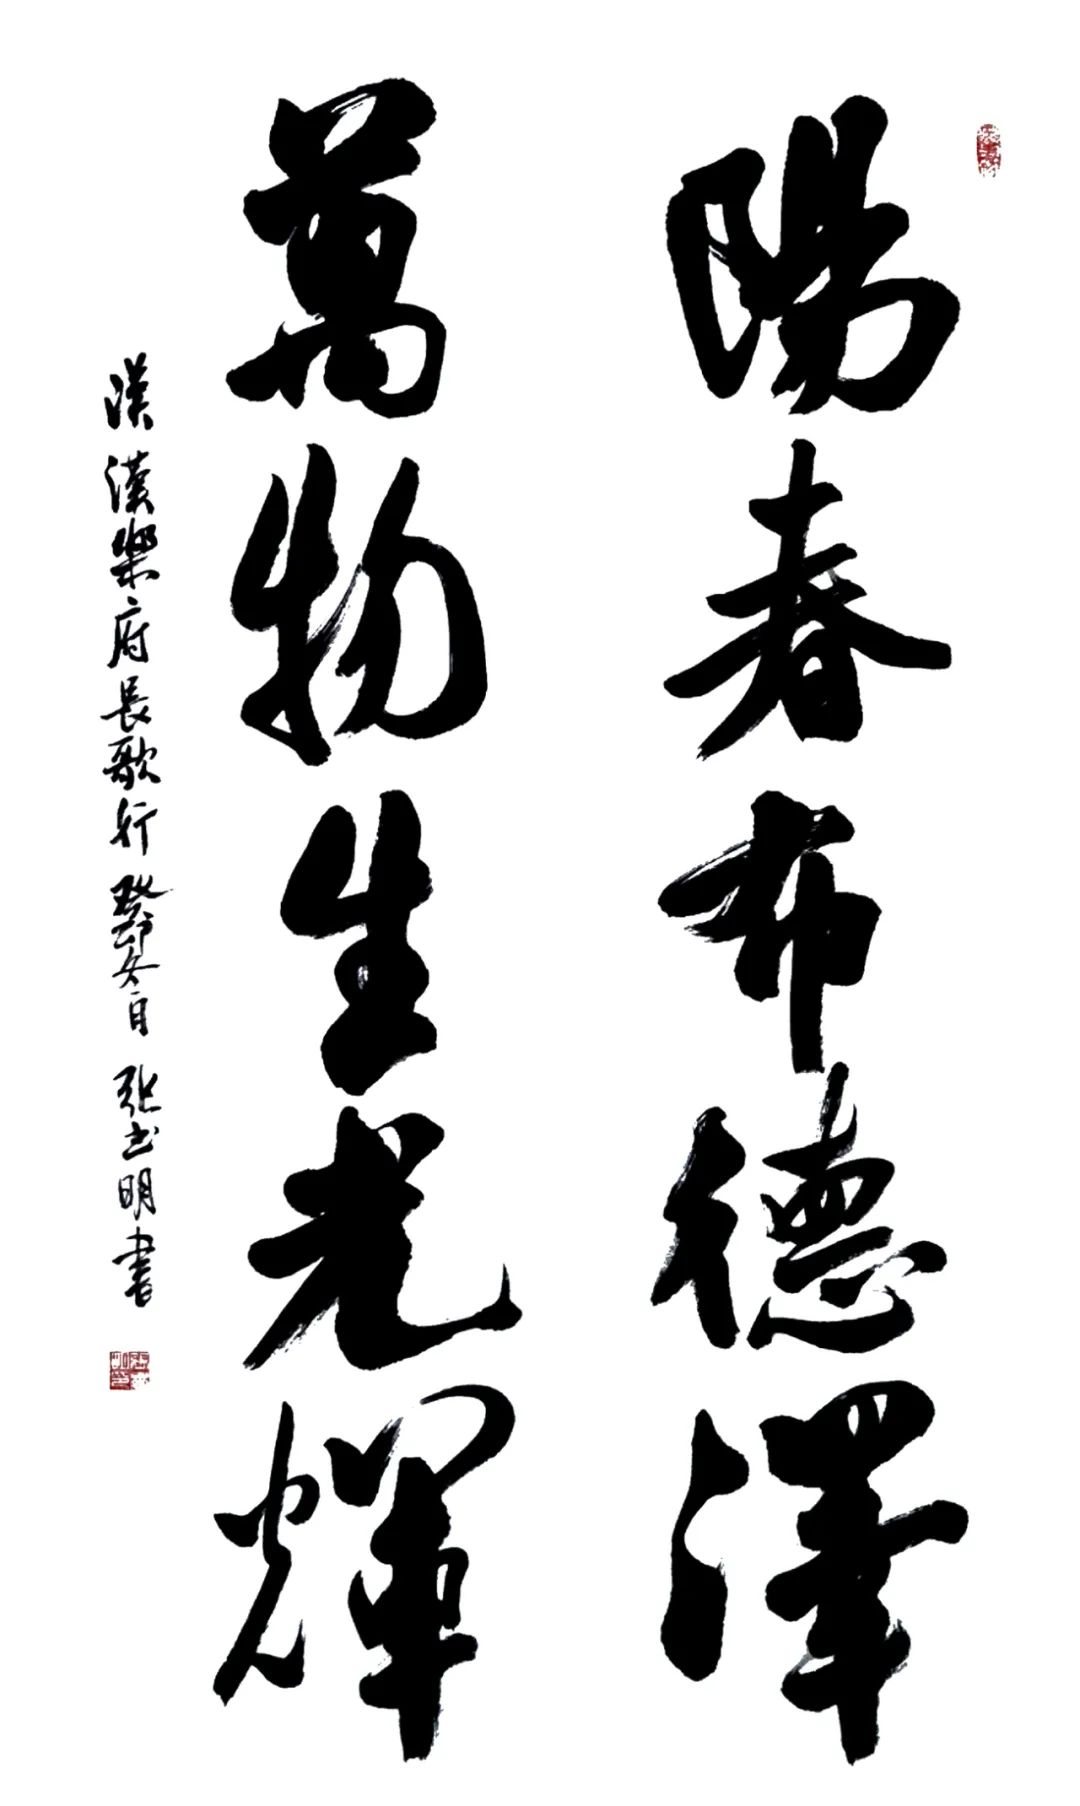 陽春布德澤
萬物生光輝
漢漢樂府長歌行癸卯冬月張書明書